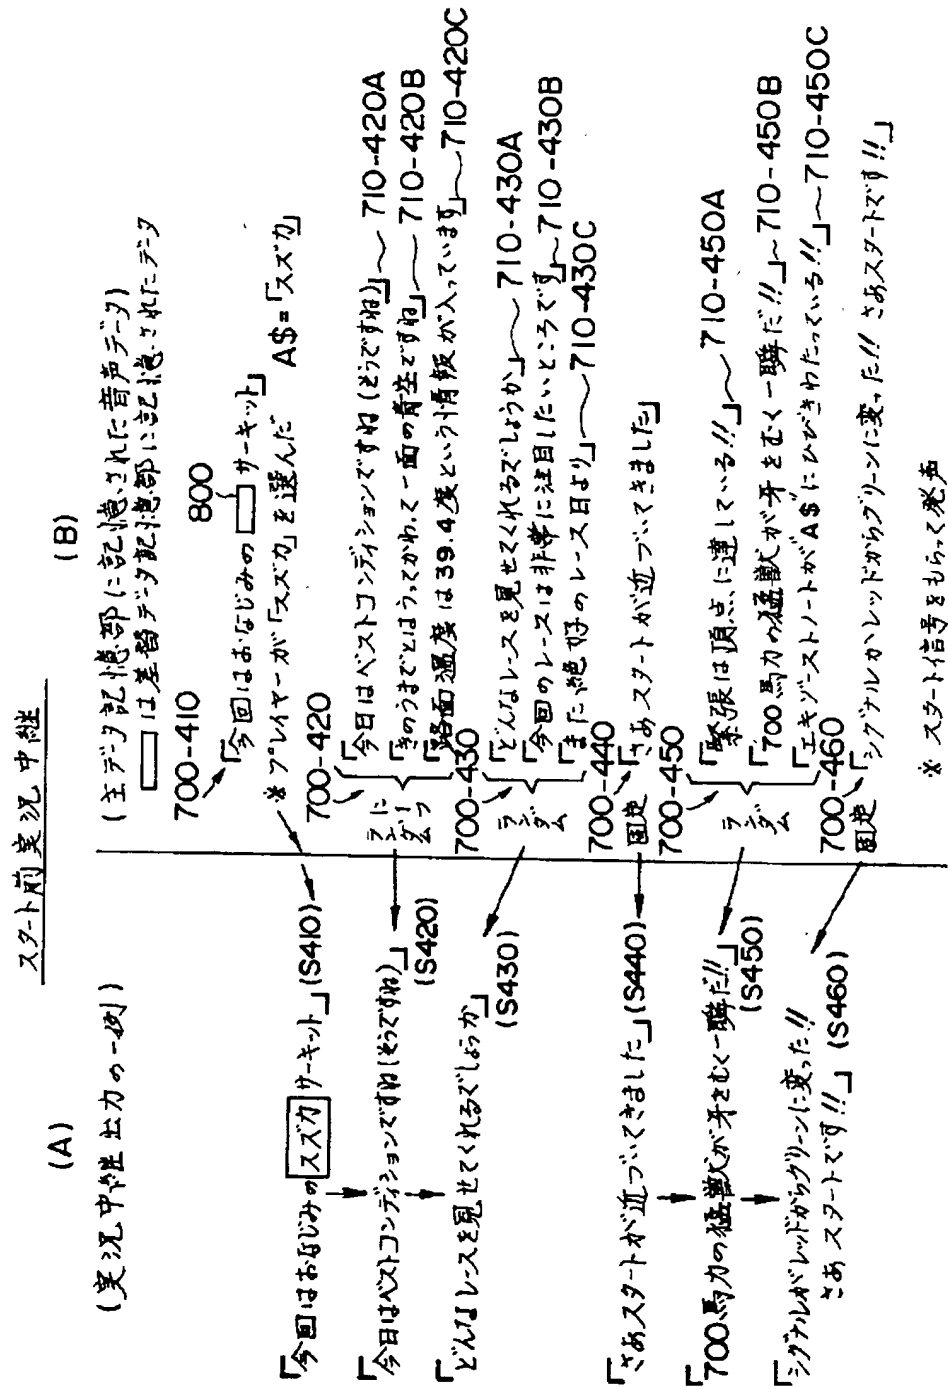 スタート前実況中継
(A)
(実況中継出力の一例)
「今回はおなじみのスズカサーキット」(S410)
「今日はベストコンディションですね(そうですね)」
(S420)
「どんなレースを見せてくれるでしょうか」
(S430)
「さあスタートが近づいてきました」(S440)
「700馬力の猛獣が牙をむく一瞬だ!!」
(S450)
「シグナルがレッドからグリーンに変った!!
さあスタートです!!」(S460)
(B)
(主データ記憶部に記憶された音声データ)
は基督データ記憶部に記憶されたデータ
700-410
800
「今回はおなじみの サーキット」
※プレイヤーが「スズカ」を選んだ A$=「スズカ」
700-420
ランダムに1つ
「今日はベストコンディションですね(そうですね)」~710-420A
「きのうまでとはうってかわって一面の青空ですね」~710-420B
「路面温度は39.4度という情報が入っています」~710-420C
700-430
ランダム
「どんなレースを見せてくれるでしょうか」~710-430A
「今回のレースは非常に注目したいところです」~710-430B
「また絶好のレース日より」~710-430C
700-440
固定
「さあスタートが近づいてきました」
700-450
ランダム
「緊張は頂点に達している!!」~710-450A
「700馬力の猛獣が牙をむく一瞬だ!!」~710-450B
「エキゾーストノートが"A$"にひびきわたっている!!」~710-450C
700-460
固定
「シグナルがレッドからグリーンに変った!! さあスタートです!!」
※スタート信号をもらって発声